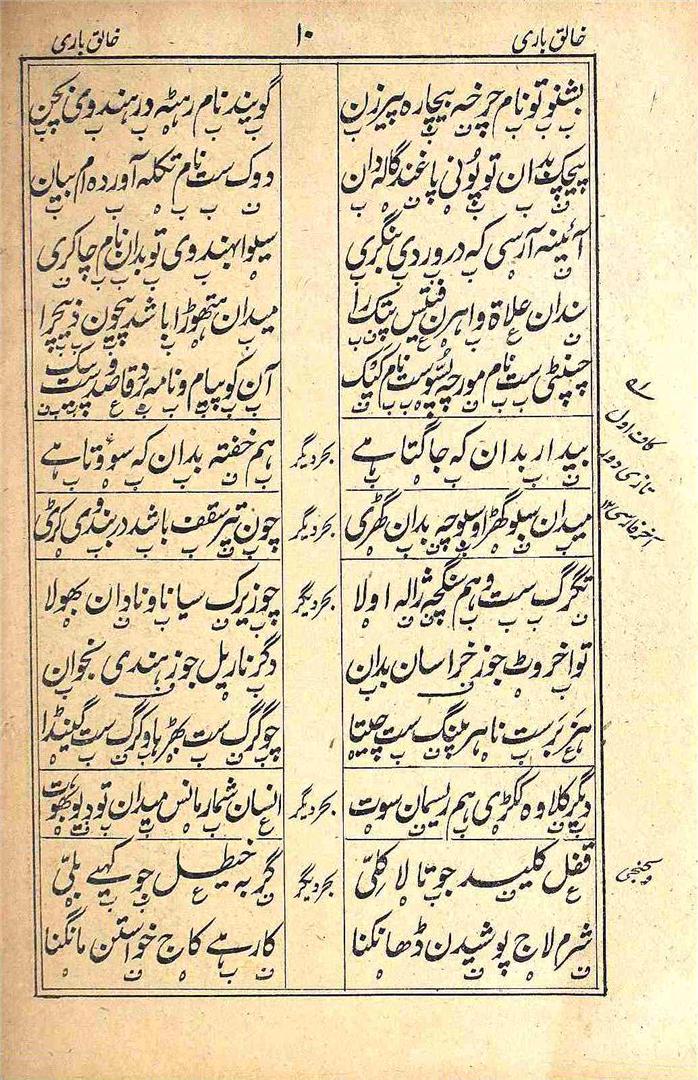 خالق باری
۱۰
خالق باری
بشنو تو نام چرخه بیچاره پیرزن
گویند نام رہٹہ در ہندوی بچن
پیچک بدان تو پونی پاغند گالہ دان
دوک ست نام تکلہ آوردہ ام بیان
آئینہ آرسی کہ درو روی بنگری
سیوا بہندوی تو بدان نام چاکری
سندان علاۃ واہرن فطیس پتک را
میدان ہتھوڑا باشد بیچون ذبیچرا
چینٹی ست نام مورچہ پسو ست نام کیک
آن کو پیام و نامہ برد قاصد ست پیک
بیدار بدان کہ جاگتا ہے
بحر دیگر
ہم خفتہ بدان کہ سووتا ہے
میدان سبو گھڑا و سبوچہ بدان گھڑی
بحر دیگر
چون تیر سقف باشد در ہندوی کڑی
تگرگ ست و ہم سنگچہ ژالہ اولا
بحر دیگر
چو زیرک سیانا و نادان بھولا
تو اخروٹ جوز خراسان بدان
دگر ناریل جوز ہندی بخوان
ہزبر ست ناہر پلنگ ست چیتا
چو گرگ ست بھڑہا و کرگ ست گینڈا
دیگر کلاوہ ککڑی ہم ریسمان سوت
بحر دیگر
انسان شمار مانس میدان تو دیو بھوت
قفل کلید جو تالا کلّی
بحر دیگر
گربہ خیطل جو کہیے بلّی
شرم لاج پوشیدن ڈھانکنا
کار ہے کاج خواستن مانگنا
کاف اول
تازی دور
آخر فارسی ۱۲